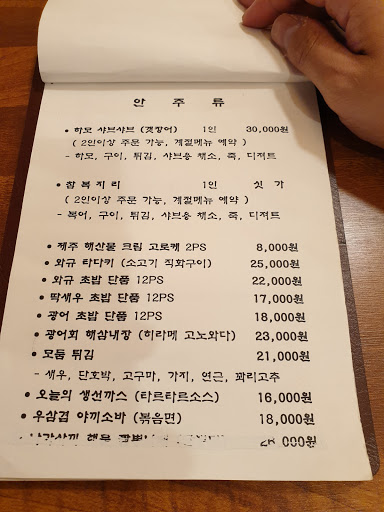 안 주 류
• 하모 샤브샤브 (갯장어) 1인 30,000원
( 2인이상 주문 가능, 계절메뉴 예약 )
- 하모, 구이, 튀김, 샤브용 채소, 죽, 디저트
• 참복지리 1인 싯가
( 2인이상 주문 가능, 계절메뉴 예약 )
- 복어, 구이, 튀김, 샤브용 채소, 죽, 디저트
• 제주 해산물 크림 고로케 2PS 8,000원
• 와규 타다키 (소고기 직화구이) 25,000원
• 와규 초밥 단품 12PS 22,000원
• 딱새우 초밥 단품 12PS 17,000원
• 광어 초밥 단품 12PS 18,000원
• 광어회 해삼내장 (히라메 고노와다) 23,000원
• 모듬 튀김 21,000원
- 새우, 단호박, 고구마, 가지, 연근, 꽈리고추
• 오늘의 생선까스 (타르타르소스) 16,000원
• 우삼겹 야끼소바 (볶음면) 18,000원
000원